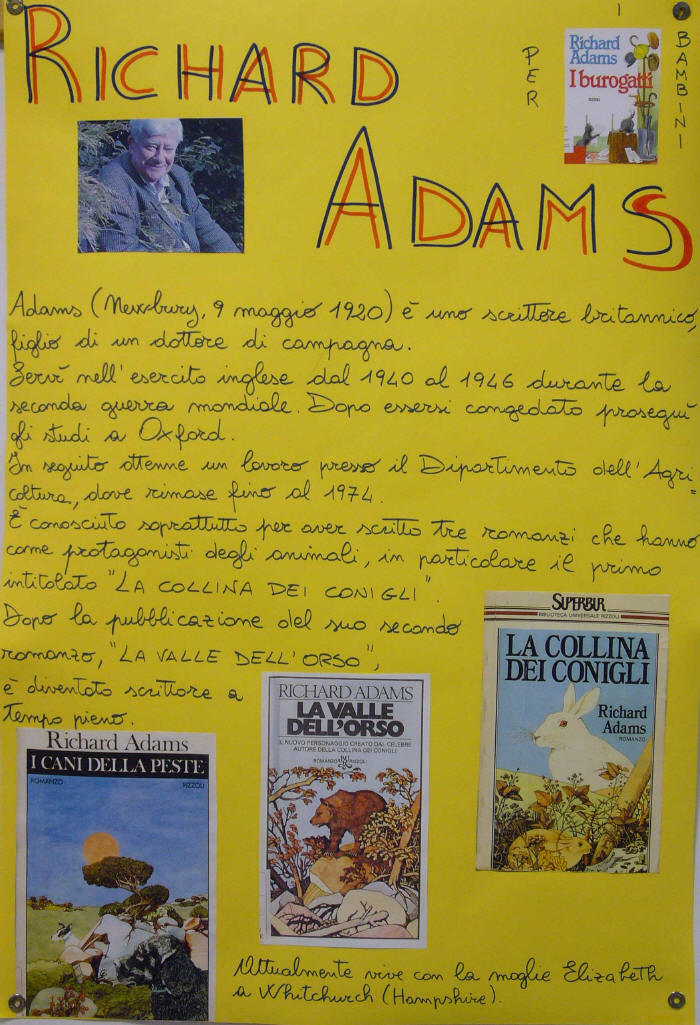 RICHARD
ADAMS
PER
I
BAMBINI
Richard
Adams
I burogatti
Adams (Newbury, 9 maggio 1920) è uno scrittore britannico,
figlio di un dottore di campagna.
Servì nell'esercito inglese dal 1940 al 1946 durante la
seconda guerra mondiale. Dopo essersi congedato proseguì
gli studi a Oxford.
In seguito ottenne un lavoro presso il Dipartimento dell'Agri=
coltura, dove rimase fino al 1974.
È conosciuto soprattutto per aver scritto tre romanzi che hanno
come protagonisti degli animali, in particolare il primo
intitolato "LA COLLINA DEI CONIGLI".
Dopo la pubblicazione del suo secondo
romanzo, "LA VALLE DELL'ORSO",
è diventato scrittore a
tempo pieno.
SUPERBUR
BIBLIOTECA UNIVERSALE RIZZOLI
LA COLLINA
DEI CONIGLI
Richard
Adams
ROMANZO
RICHARD ADAMS
LA VALLE
DELL'ORSO
IL NUOVO PERSONAGGIO CREATO DAL CELEBRE
AUTORE DELLA COLLINA DEI CONIGLI
ROMANZO RIZZOLI
Richard Adams
I CANI DELLA PESTE
ROMANZO RIZZOLI
Attualmente vive con la moglie Elizabeth
a Whitchurch (Hampshire).